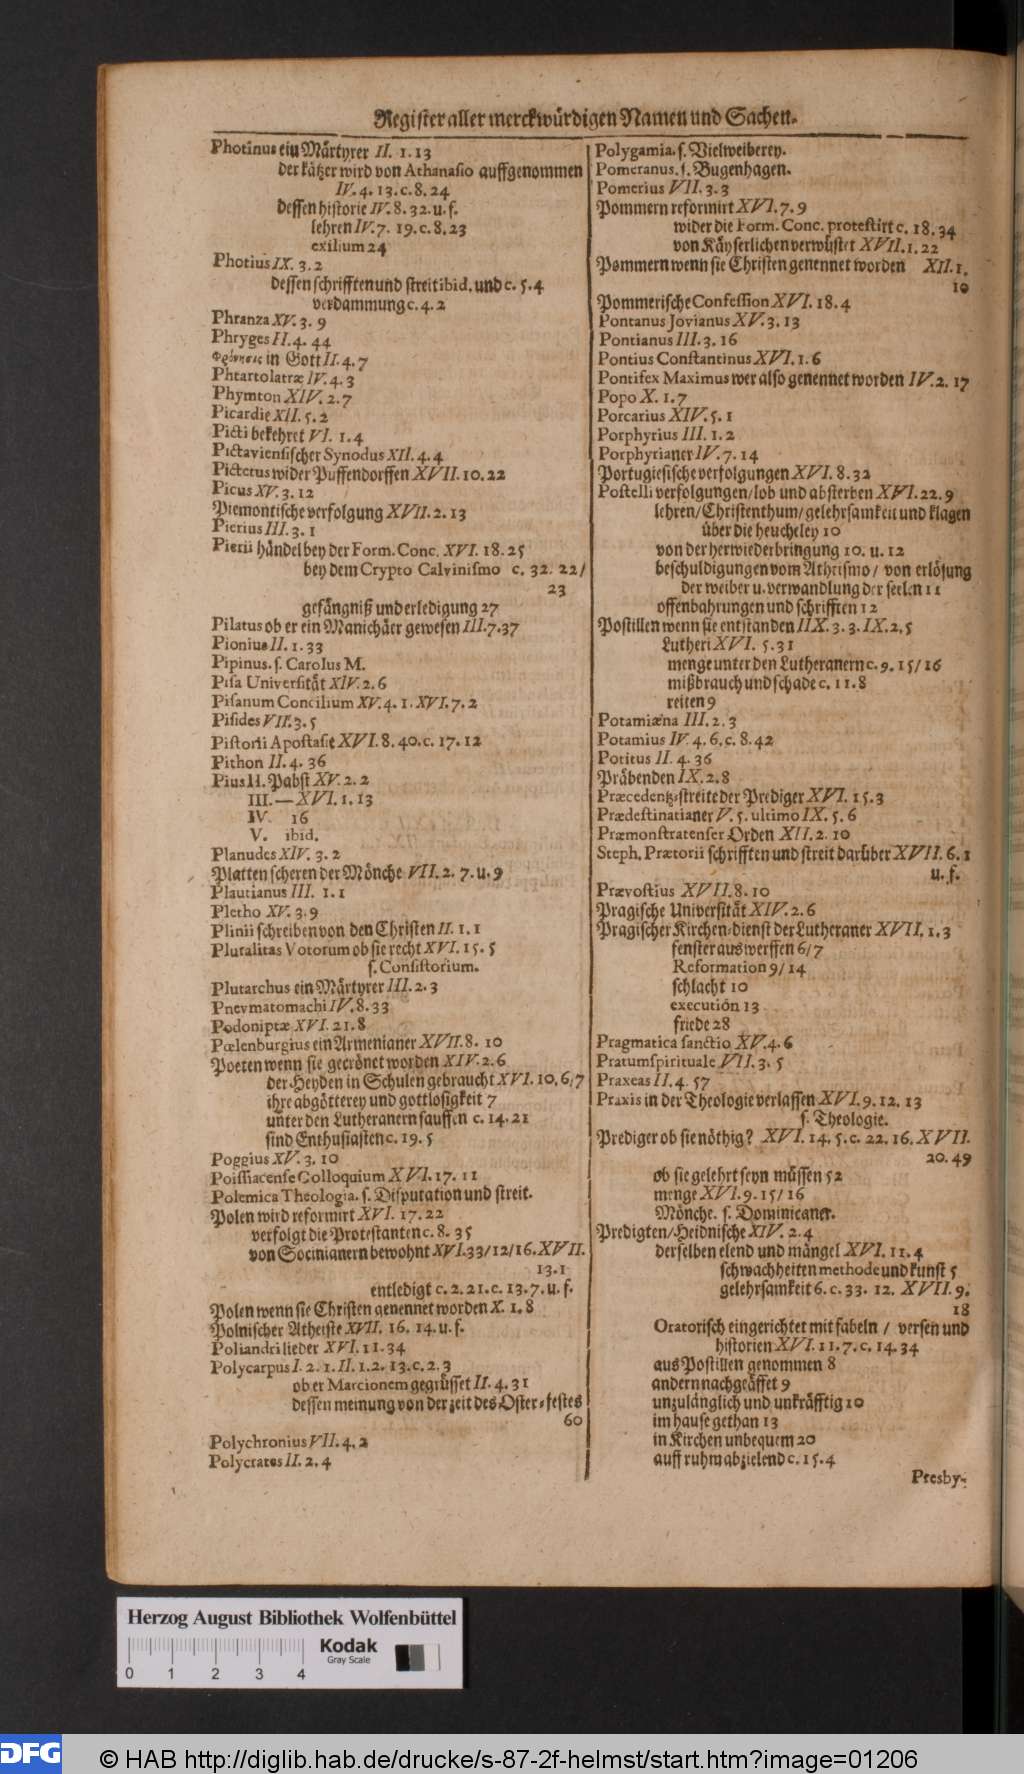 Register aller merckwürdigen Namen und Sachen.
Photinus ein Märtyrer II. 1. 13
der kätzer wird von Athanasio auffgenommen
IV. 4. 13. c. 8. 24
dessen historie IV. 8. 32. u. f.
lehren IV. 7. 19. c. 8. 23
exilium 24
Photius IX. 3. 2
dessen schrifften und streit ibid. und c. 5. 4
verdammung c. 4. 2
Phranza XV. 3. 9
Phryges II. 4. 44
Φρόνησις in Gott II. 4. 7
Phtartolatræ IV. 4. 3
Phymton XIV. 2. 7
Picardie XII. 5. 2
Picti bekehret VI. 1. 4
Pictaviensischer Synodus XII. 4. 4
Pictetus wider Puffendorffen XVII. 10. 22
Picus XV. 3. 12
Piemontische verfolgung XVII. 2. 13
Pierius III. 3. 1
Pierii händel bey der Form. Conc. XVI. 18. 25
bey dem Crypto Calvinismo c. 32. 22/
23
gefängniß und erledigung 27
Pilatus ob er ein Manichäer gewesen III. 7. 37
Pionius II. 1. 33
Pipinus. s. Carolus M.
Pisa Universität XIV. 2. 6
Pisanum Concilium XV. 4. 1. XVI. 7. 2
Pisides VII. 3. 5
Pistorii Apostasie XVI. 8. 40. c. 17. 12
Pithon II. 4. 36
Pius II. Pabst XV. 2. 2
III. — XVI. 1. 13
IV. 16
V. ibid.
Planudes XIV. 3. 2
Platten scheren der Mönche VII. 2. 7. u. 9
Plautianus III. 1. 1
Pletho XV. 3. 9
Plinii schreiben von den Christen II. 1. 1
Pluralitas Votorum ob sie recht XVI. 15. 5
s. Consistorium.
Plutarchus ein Märtyrer III. 2. 3
Pnevmatomachi IV. 8. 33
Podoniptæ XVI. 21. 8
Pœlenburgius ein Armenianer XVII. 8. 10
Poeten wenn sie gecrönet worden XIV. 2. 6
der Heyden in Schulen gebraucht XVI. 10. 6/7
ihre abgötterey und gottlosigkeit 7
unter den Lutheranern sauffen c. 14. 21
sind Enthusiasten c. 19. 5
Poggius XV. 3. 10
Poissiacense Colloquium XVI. 17. 11
Polemica Theologia. s. Disputation und streit.
Polen wird reformirt XVI. 17. 22
verfolgt die Protestanten c. 8. 35
von Socinianern bewohnt XVI. 33/12/16. XVII.
13. 1
entledigt c. 2. 21. c. 13. 7. u. f.
Polen wenn sie Christen genennet worden X. 1. 8
Polnischer Atheiste XVII. 16. 14. u. f.
Poliandri lieder XVI. 11. 34
Polycarpus I. 2. 1. II. 1. 2. 13. c. 2. 3
ob er Marcionem gegrüsset II. 4. 31
dessen meinung von der zeit des Oster-festes
60
Polychronius VII. 4. 2
Polycrates II. 2. 4
Polygamia. s. Vielweiberey.
Pomeranus. s. Bugenhagen.
Pomerius VII. 3. 3
Pommern reformirt XVI. 7. 9
wider die Form. Conc. protestirt c. 18. 34
von Käyserlichen verwüstet XVII. 1. 22
Pommern wenn sie Christen genennet worden XII. 1.
10
Pommerische Confession XVI. 18. 4
Pontanus Jovianus XV. 3. 13
Pontianus III. 3. 16
Pontius Constantinus XVI. 1. 6
Pontifex Maximus wer also genennet worden IV. 2. 17
Popo X. 1. 7
Porcarius XIV. 5. 1
Porphyrius III. 1. 2
Porphyrianer IV. 7. 14
Portugiesische verfolgungen XVI. 8. 32
Postelli verfolgungen/lob und absterben XVI. 22. 9
lehren/Christenthum/gelehrsamkeit und klagen
über die heucheley 10
von der herwiederbringung 10. u. 12
beschuldigungen vom Atheismo/ von erlösung
der weiber u. verwandlung der seelen 11
offenbahrungen und schrifften 12
Postillen wenn sie entstanden IIX. 3. 3. IX. 2. 5
Lutheri XVI. 5. 31
menge unter den Lutheranern c. 9. 15/16
mißbrauch und schade c. 11. 8
reiten 9
Potamiæna III. 2. 3
Potamius IV. 4. 6. c. 8. 42
Potitus II. 4. 36
Präbenden IX. 2. 8
Præcedentz-streite der Prediger XVI. 15. 3
Prædestinatianer V. 5. ultimo IX. 5. 6
Præmonstratenser Orden XII. 2. 10
Steph. Prætorii schrifften und streit darüber XVII. 6. 1
u. f.
Prævostius XVII. 8. 10
Pragische Universität XIV. 2. 6
Pragischer Kirchen-dienst der Lutheraner XVII. 1. 3
fenster auswerffen 6/7
Reformation 9/14
schlacht 10
execution 13
friede 28
Pragmatica sanctio XV. 4. 6
Pratum spirituale VII. 3. 5
Praxeas II. 4. 57
Praxis in der Theologie verlassen XVI. 9. 12. 13
s. Theologie.
Prediger ob sie nöthig? XVI. 14. 5. c. 22. 16. XVII.
20. 49
ob sie gelehrt seyn müssen 52
menge XVI. 9. 15/16
Mönche. s. Dominicaner.
Predigten/Heidnische XIV. 2. 4
derselben elend und mängel XVI. 11. 4
schwachheiten methode und kunst 5
gelehrsamkeit 6. c. 33. 12. XVII. 9.
18
Oratorisch eingerichtet mit fabeln / versen und
historien XVI. 11. 7. c. 14. 34
aus Postillen genommen 8
andern nachgeäffet 9
unzulänglich und unkräfftig 10
im hause gethan 13
in Kirchen unbequem 20
auff ruhm abzielend c. 15. 4
Presby-
Herzog August Bibliothek Wolfenbüttel
Kodak
Gray Scale
0 1 2 3 4
DFG © HAB http://diglib.hab.de/drucke/s-87-2f-helmst/start.htm?image=01206